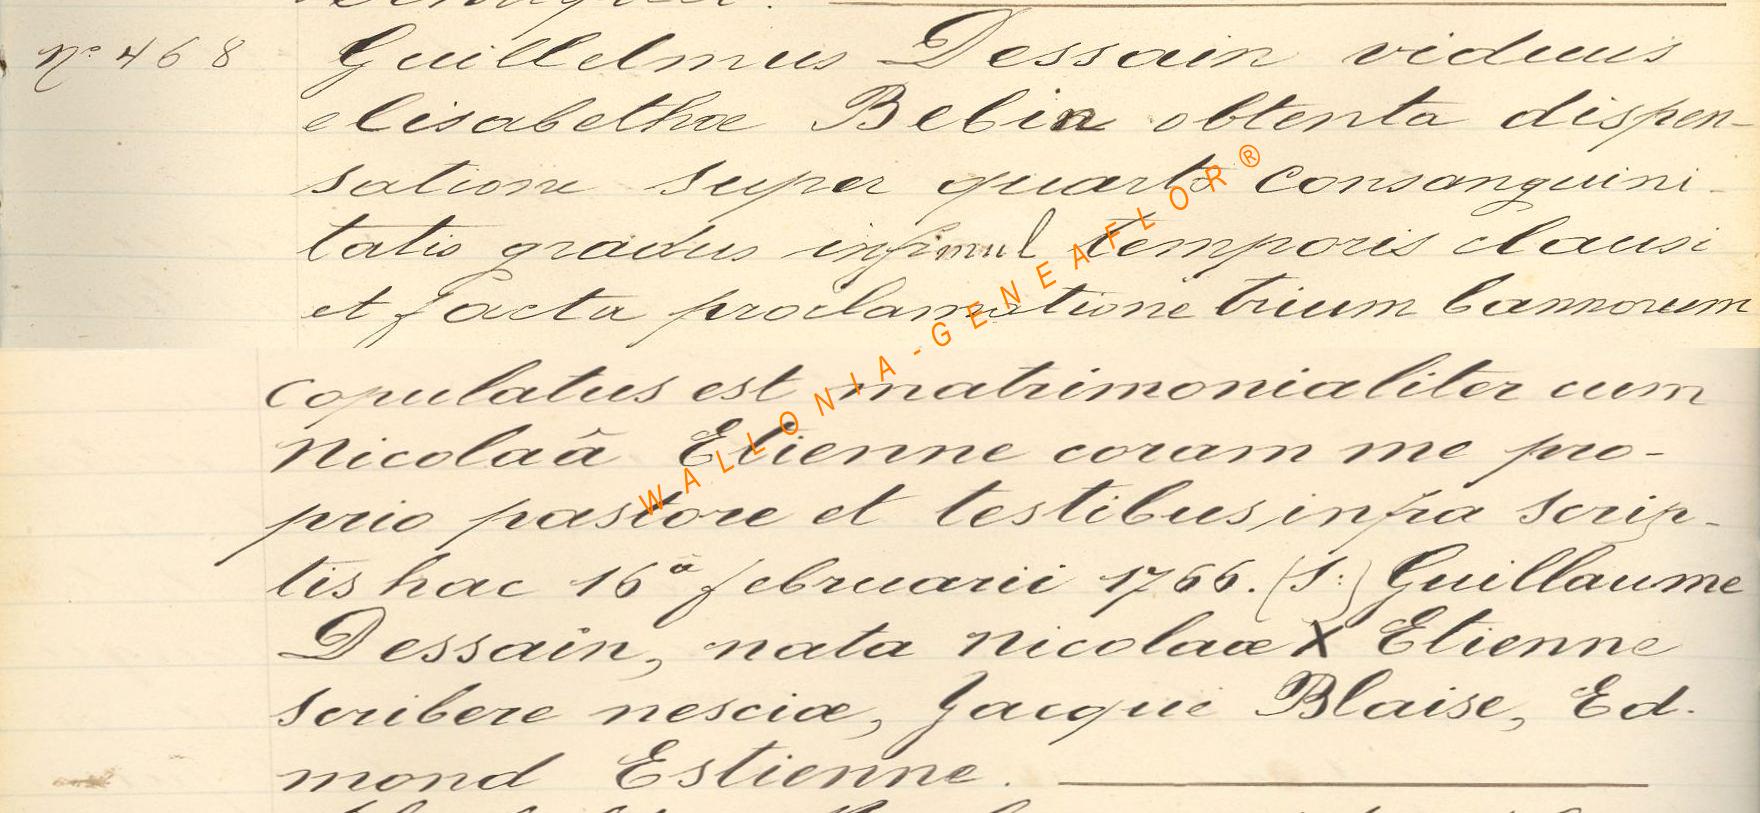 N.º 468 Guillelmus Dessain viduus
elisabethæ Bebin obtenta dispen-
satione super quarto consanguini-
tatis gradus insimul temporis clausi
et facta proclamatione trium bannorum
copulatus est matrimonialiter cum
Nicolaâ Etienne coram me pro-
prio pastore et testibus infra scrip-
tis hac 16â februarii 1766. (S:) Guillaume
Dessain, nata Nicolaæ X Etienne
scribere nesciæ, Jacque Blaise, Ed-
mond Estienne.
WALLONIA-GENEAFLOR®